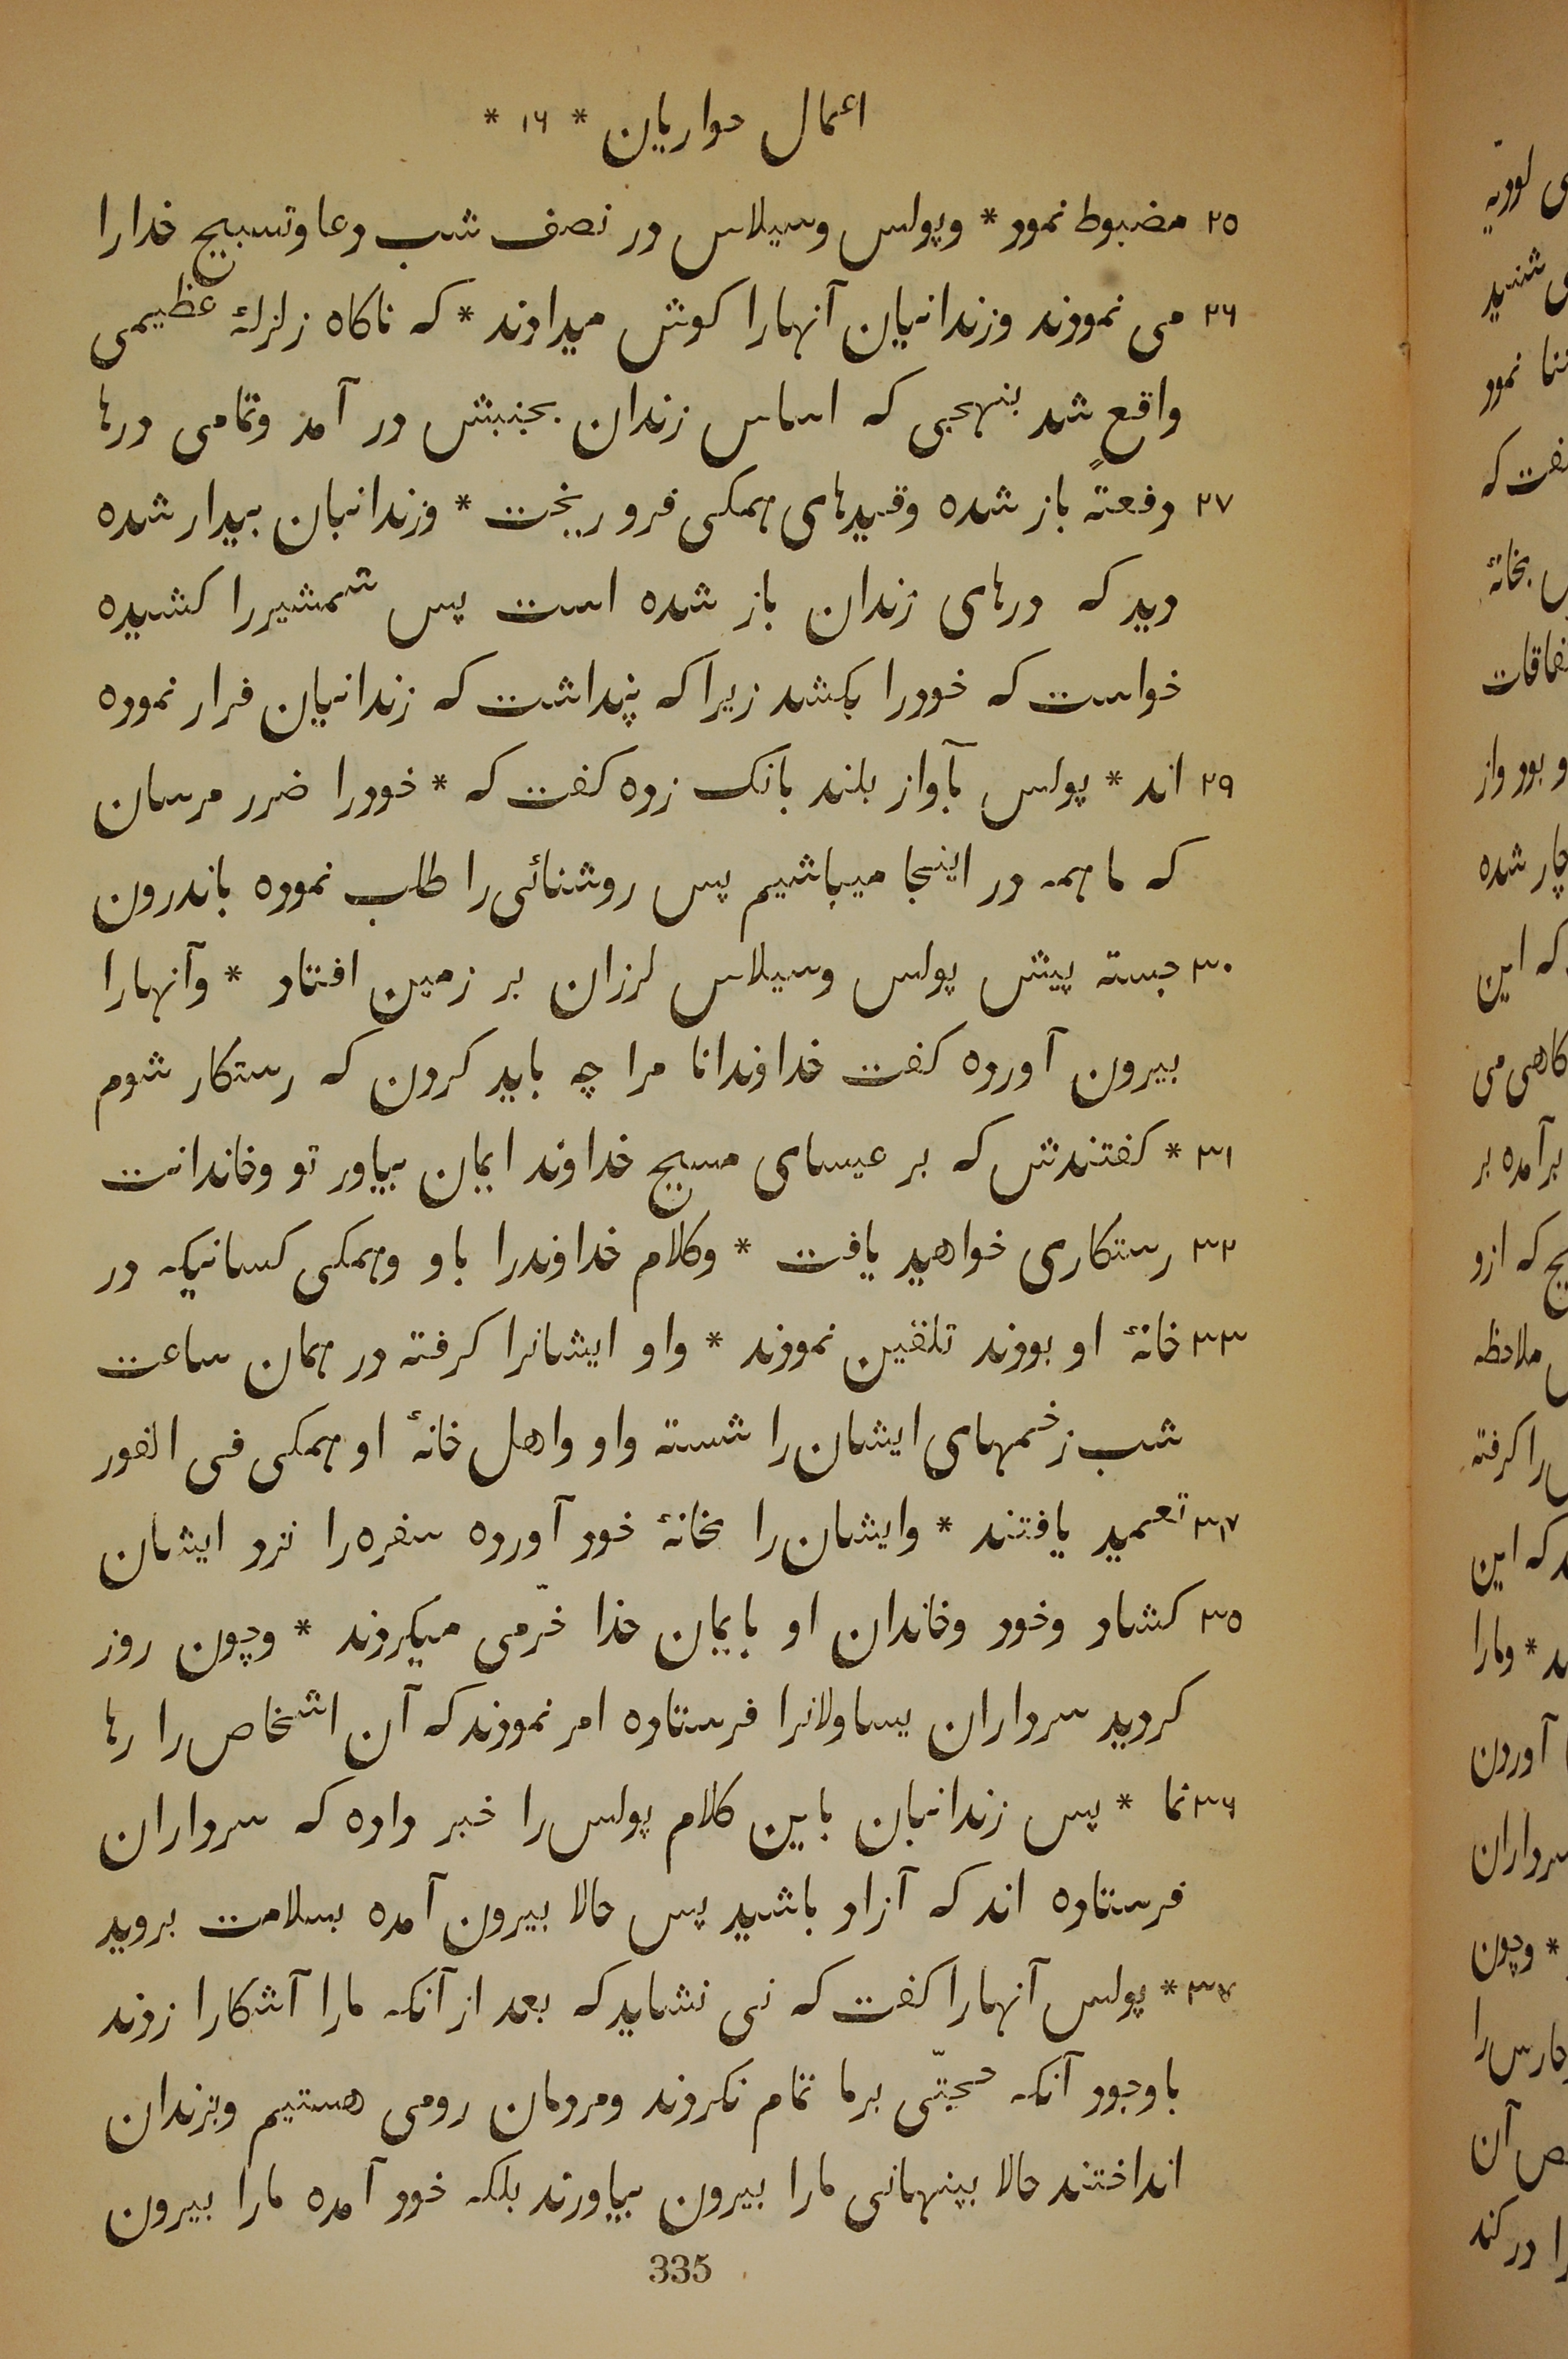 اعمال حواریان * ۱۶ *
۲۵ مضبوط نمود * وپولس وسیلاس در نصف شب دعا وتسبیح خدارا
۲۶ می نمودند وزندانیان آنهارا کوش میدادند * که ناکاه زلزلهٔ عظیمی
واقع شد بنهجی که اساس زندان بجنبش در آمد وتمامی درها
۲۷ دفعتهً باز شده وقیدهای همکی فرو ریخت * وزندانبان بیدار شده
دید که درهای زندان باز شده است پس شمشیررا کشیده
خواست که خودرا بکشد زیرا که پنداشت که زندانیان فرار نموده
۲۹ اند * پولس بآواز بلند بانک زده کفت که * خودرا ضرر مرسان
که ما همه در اینجا میباشیم پس روشنائی را طلب نموده باندرون
۳۰ جسته پیش پولس وسیلاس لرزان بر زمین افتاد * وآنهارا
بیرون آورده کفت خداوندانا مرا چه باید کردن که رستکار شوم
۳۱ * کفتندش که بر عیسای مسیح خداوند ایمان بیاور تو وخاندانت
۳۲ رستکاری خواهید یافت * وکلام خداوندرا باو وهمکی کسانیکه در
۳۳ خانهٔ او بودند تلقین نمودند * واو ایشانرا کرفته در همان ساعت
شب زخمهای ایشان را شسته واو واهل خانهٔ او همکی فی الفور
۳۴ تعمید یافتند * وایشان را بخانهٔ خود آورده سفره را نزد ایشان
۳۵ کشاد وخود وخاندان او بایمان خدا خرّمی میکردند * وچون روز
کردید سرداران یساولانرا فرستاده امر نمودند که آن اشخاص را رها
۳۶ نما * پس زندانبان باین کلام پولس را خبر داده که سرداران
فرستاده اند که آزاد باشید پس حالا بیرون آمده بسلامت بروید
۳۷ * پولس آنهارا کفت که نی نشاید که بعد از آنکه مارا آشکارا زدند
باوجود آنکه حجتّی برما تمام نکردند ومردمان رومی هستیم وبزندان
انداختند حالا بپنهانی مارا بیرون بیاورند بلکه خود آمده مارا بیرون
335